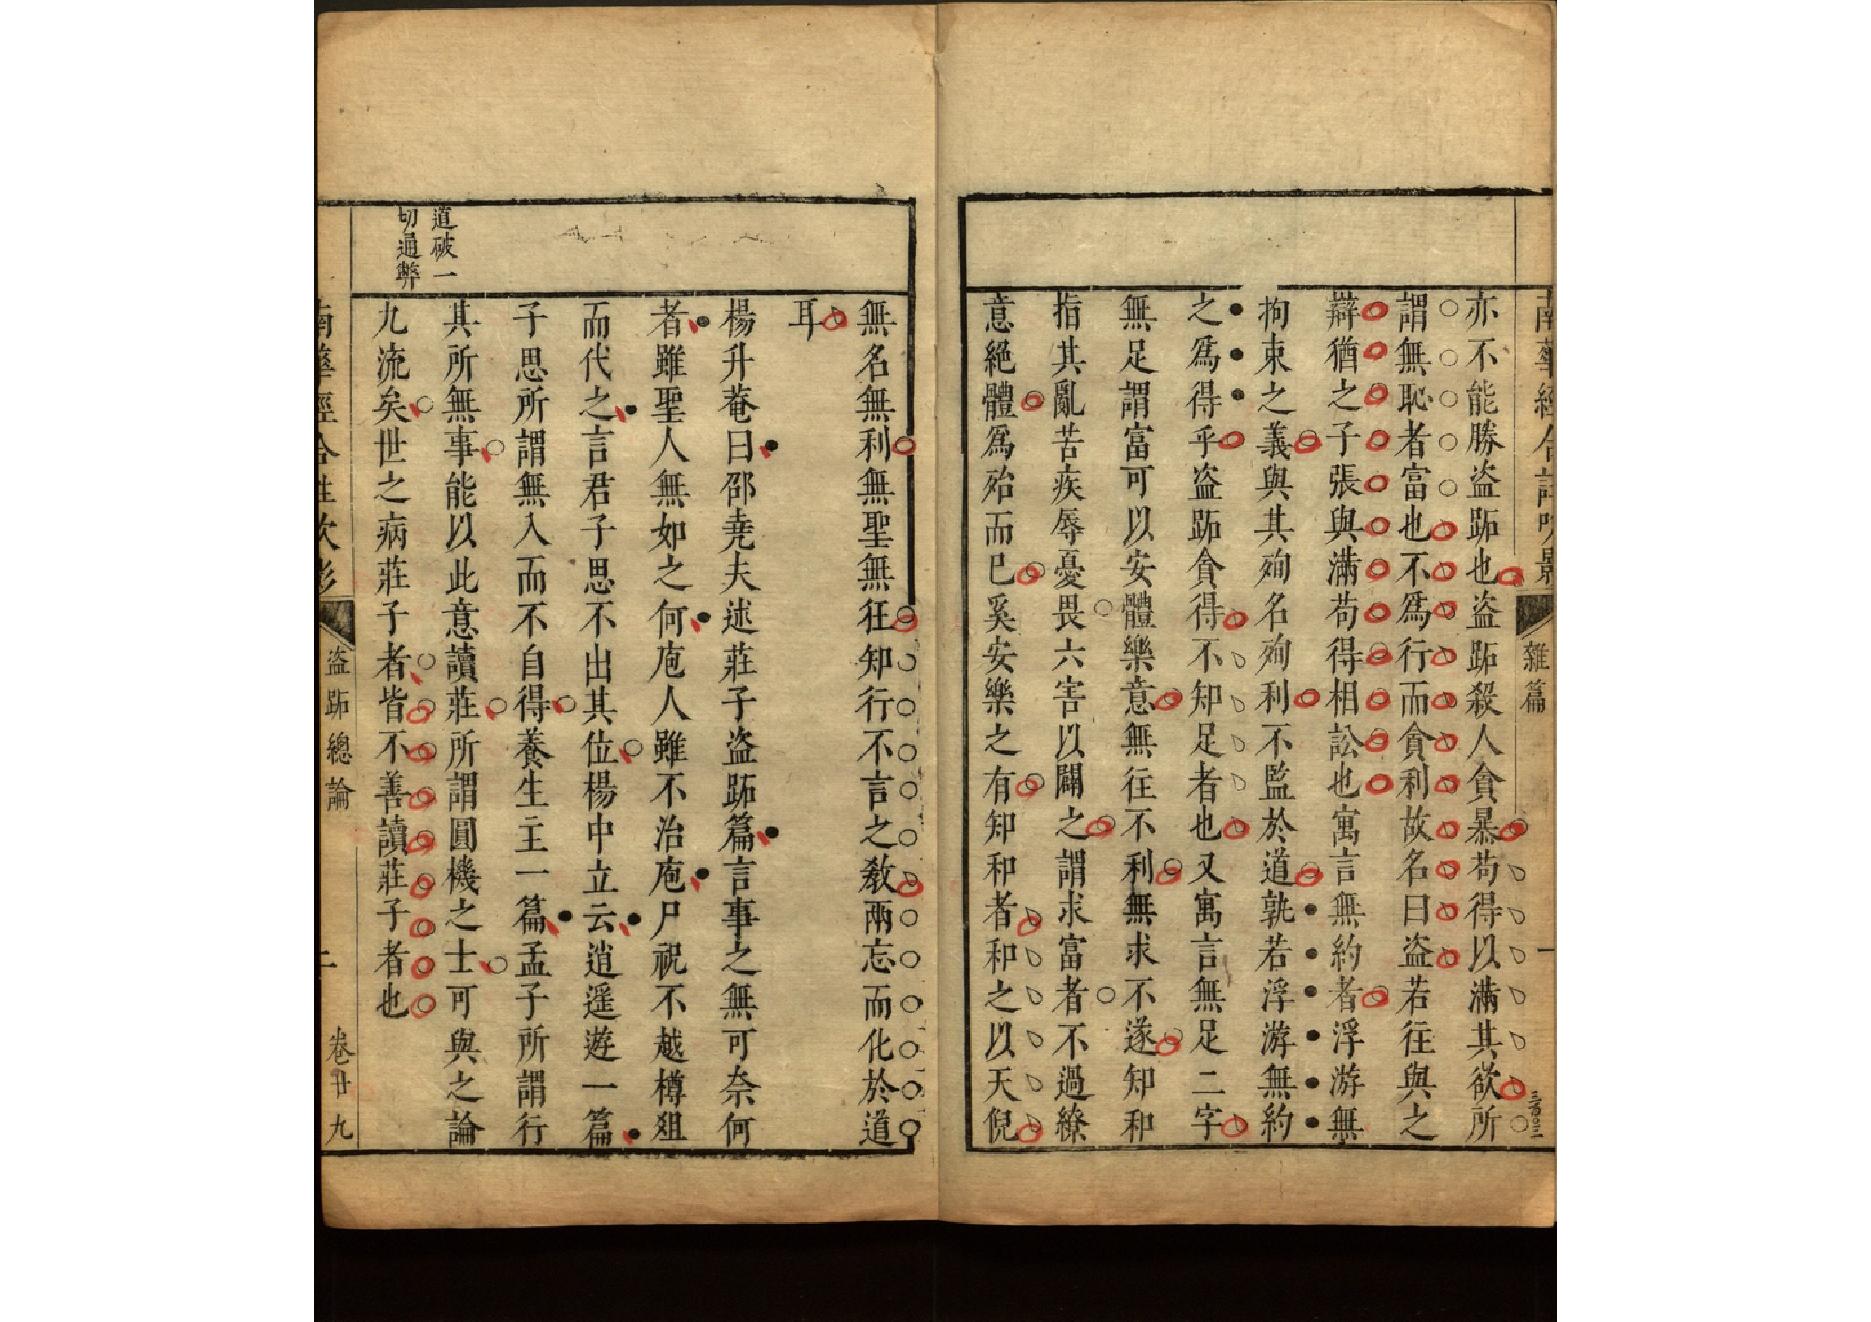 南華經合註吹影
雜篇
一
亦不能勝盗跖也盗跖殺人貪暴苟得以滿其欲所
謂無恥者富也不爲行而貪利故名曰盗若往與之
辯猶之子張與滿苟得相訟也寓言無約者浮游無
拘束之義與其殉名殉利不監於道孰若浮游無約
之爲得乎盗跖貪得不知足者也又寓言無足二字
無足謂富可以安體樂意無往不利無求不遂知和
指其亂苦疾辱憂畏六害以闢之謂求富者不過繚
意絕體爲殆而已奚安樂之有知和者和之以天倪
無名無利無聖無狂知行不言之教兩忘而化於道
耳
楊升菴曰邵堯夫述莊子盗跖篇言事之無可奈何
者雖聖人無如之何庖人雖不治庖尸祝不越樽俎
而代之言君子思不出其位楊中立云逍遥遊一篇
子思所謂無入而不自得養生主一篇孟子所謂行
其所無事能以此意讀莊所謂圓機之士可與之論
九流矣世之病莊子者皆不善讀莊子者也
道破一
切通弊
南華經合註吹影
盗跖總論
二
卷廿九